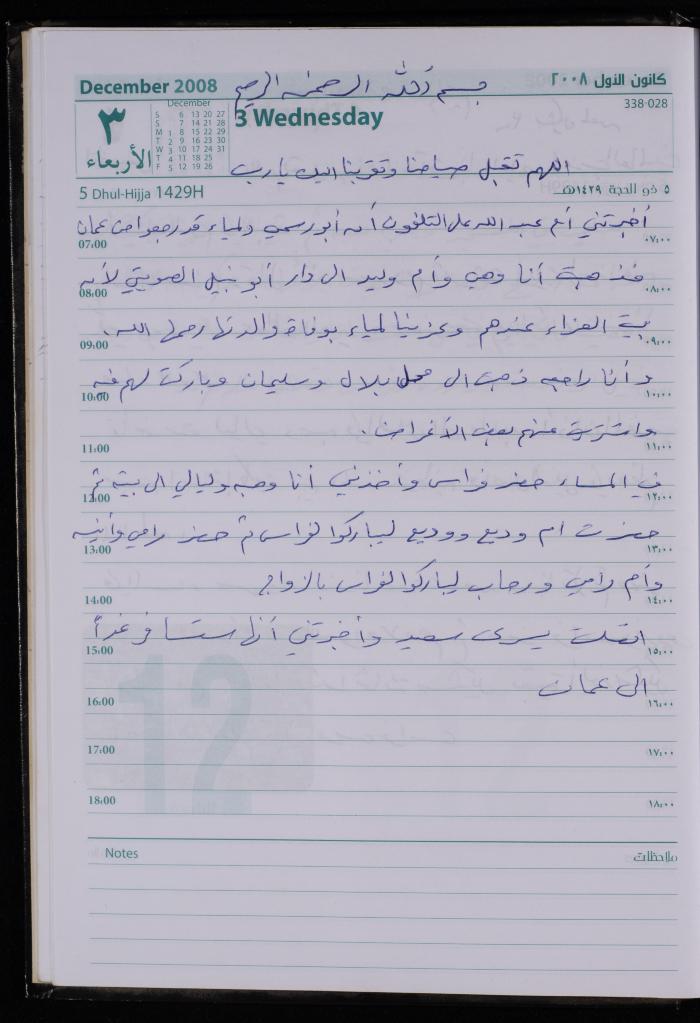 December 2008 بسم الله الرحمن الرحيم كانون الاول ٢٠٠٨
338-028
٣ 3 Wednesday
December
S 6 13 20 27
S 7 14 21 28
M 1 8 15 22 29
T 2 9 16 23 30
W 3 10 17 24 31
T 4 11 18 25
F 5 12 19 26
الأربعاء
اللهم تقبل صيامنا وتقربنا اليك يا رب
5 Dhul-Hijja 1429H ٥ ذو الحجة ١٤٢٩هـ
أخبرتني أم عبد الله على التلفون أن أبو رسمي ولمياء قد رجعوا من عمان
07:00 ٠٧:٠٠
فذهبت أنا وهبي وأم وليد الى دار أبو نبيل الصويتي لأن
08:00 ٠٨:٠٠
بيت العزاء عندهم وعزينا لمياء بوفاة والدتها رحمها الله.
09:00 ٠٩:٠٠
وأنا راجعه ذهبت الى محل بلال وسليمان وباركت لهم فيه
10:00 ١٠:٠٠
واشتريت منهم بعض الأغراض.
11:00 ١١:٠٠
في المساء حضر فراس وأخذني أنا وهبه وليالي الى بيته ثم
12:00 ١٢:٠٠
حضرت ام وديع ووديع ليباركوا لفراس ثم حضر رامي وأنيه
13:00 ١٣:٠٠
وأم رامي ورحاب ليباركوا لفراس بالزواج
14:00 ١٤:٠٠
اتصلت يسرى سعيد وأخبرتني أنها ستسافر غداً
15:00 ١٥:٠٠
الى عمان
16:00 ١٦:٠٠
17:00 ١٧:٠٠
18:00 ١٨:٠٠
12
Notes ملاحظات